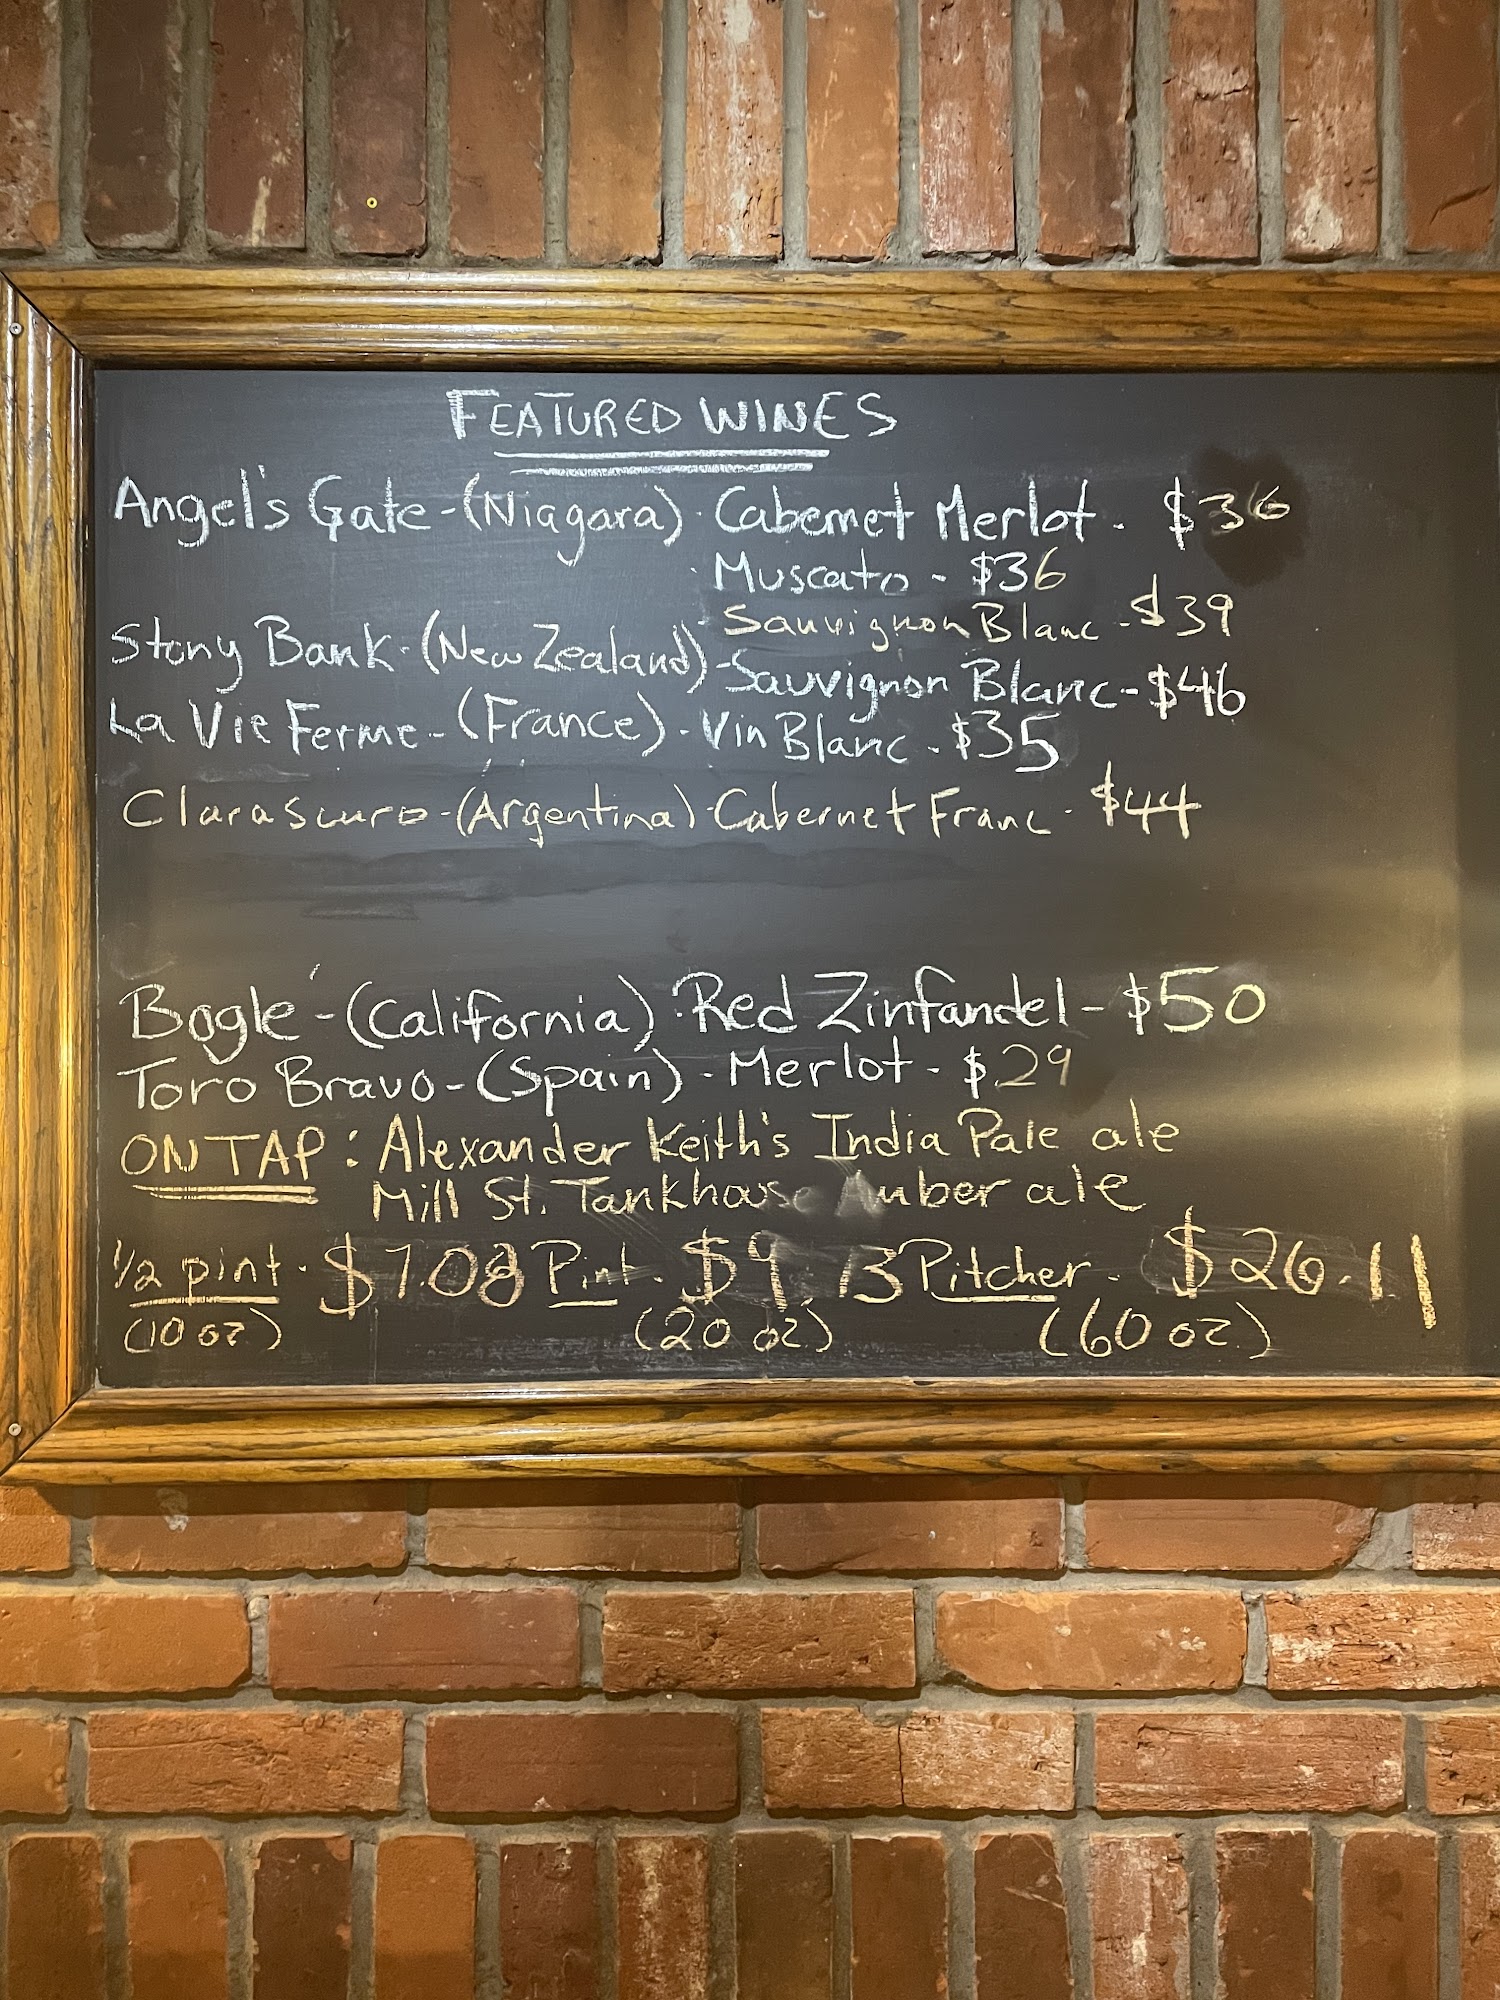 FEATURED WINES
Angel's Gate - (Niagara) · Cabernet Merlot - $36
· Muscato - $36
· Sauvignon Blanc - $39
Stony Bank · (New Zealand) - Sauvignon Blanc - $46
La Vie Ferme - (France) · Vin Blanc - $35
Clarascuro - (Argentina) · Cabernet Franc - $44
Bogle' - (California) · Red Zinfandel - $50
Toro Bravo - (Spain) · Merlot - $29
ON TAP : Alexander Keith's India Pale ale
Mill St. Tankhouse Amber ale
1/2 pint · $7.08 Pint · $9.13 Pitcher · $26.11
(10 oz) (20 oz) (60 oz)